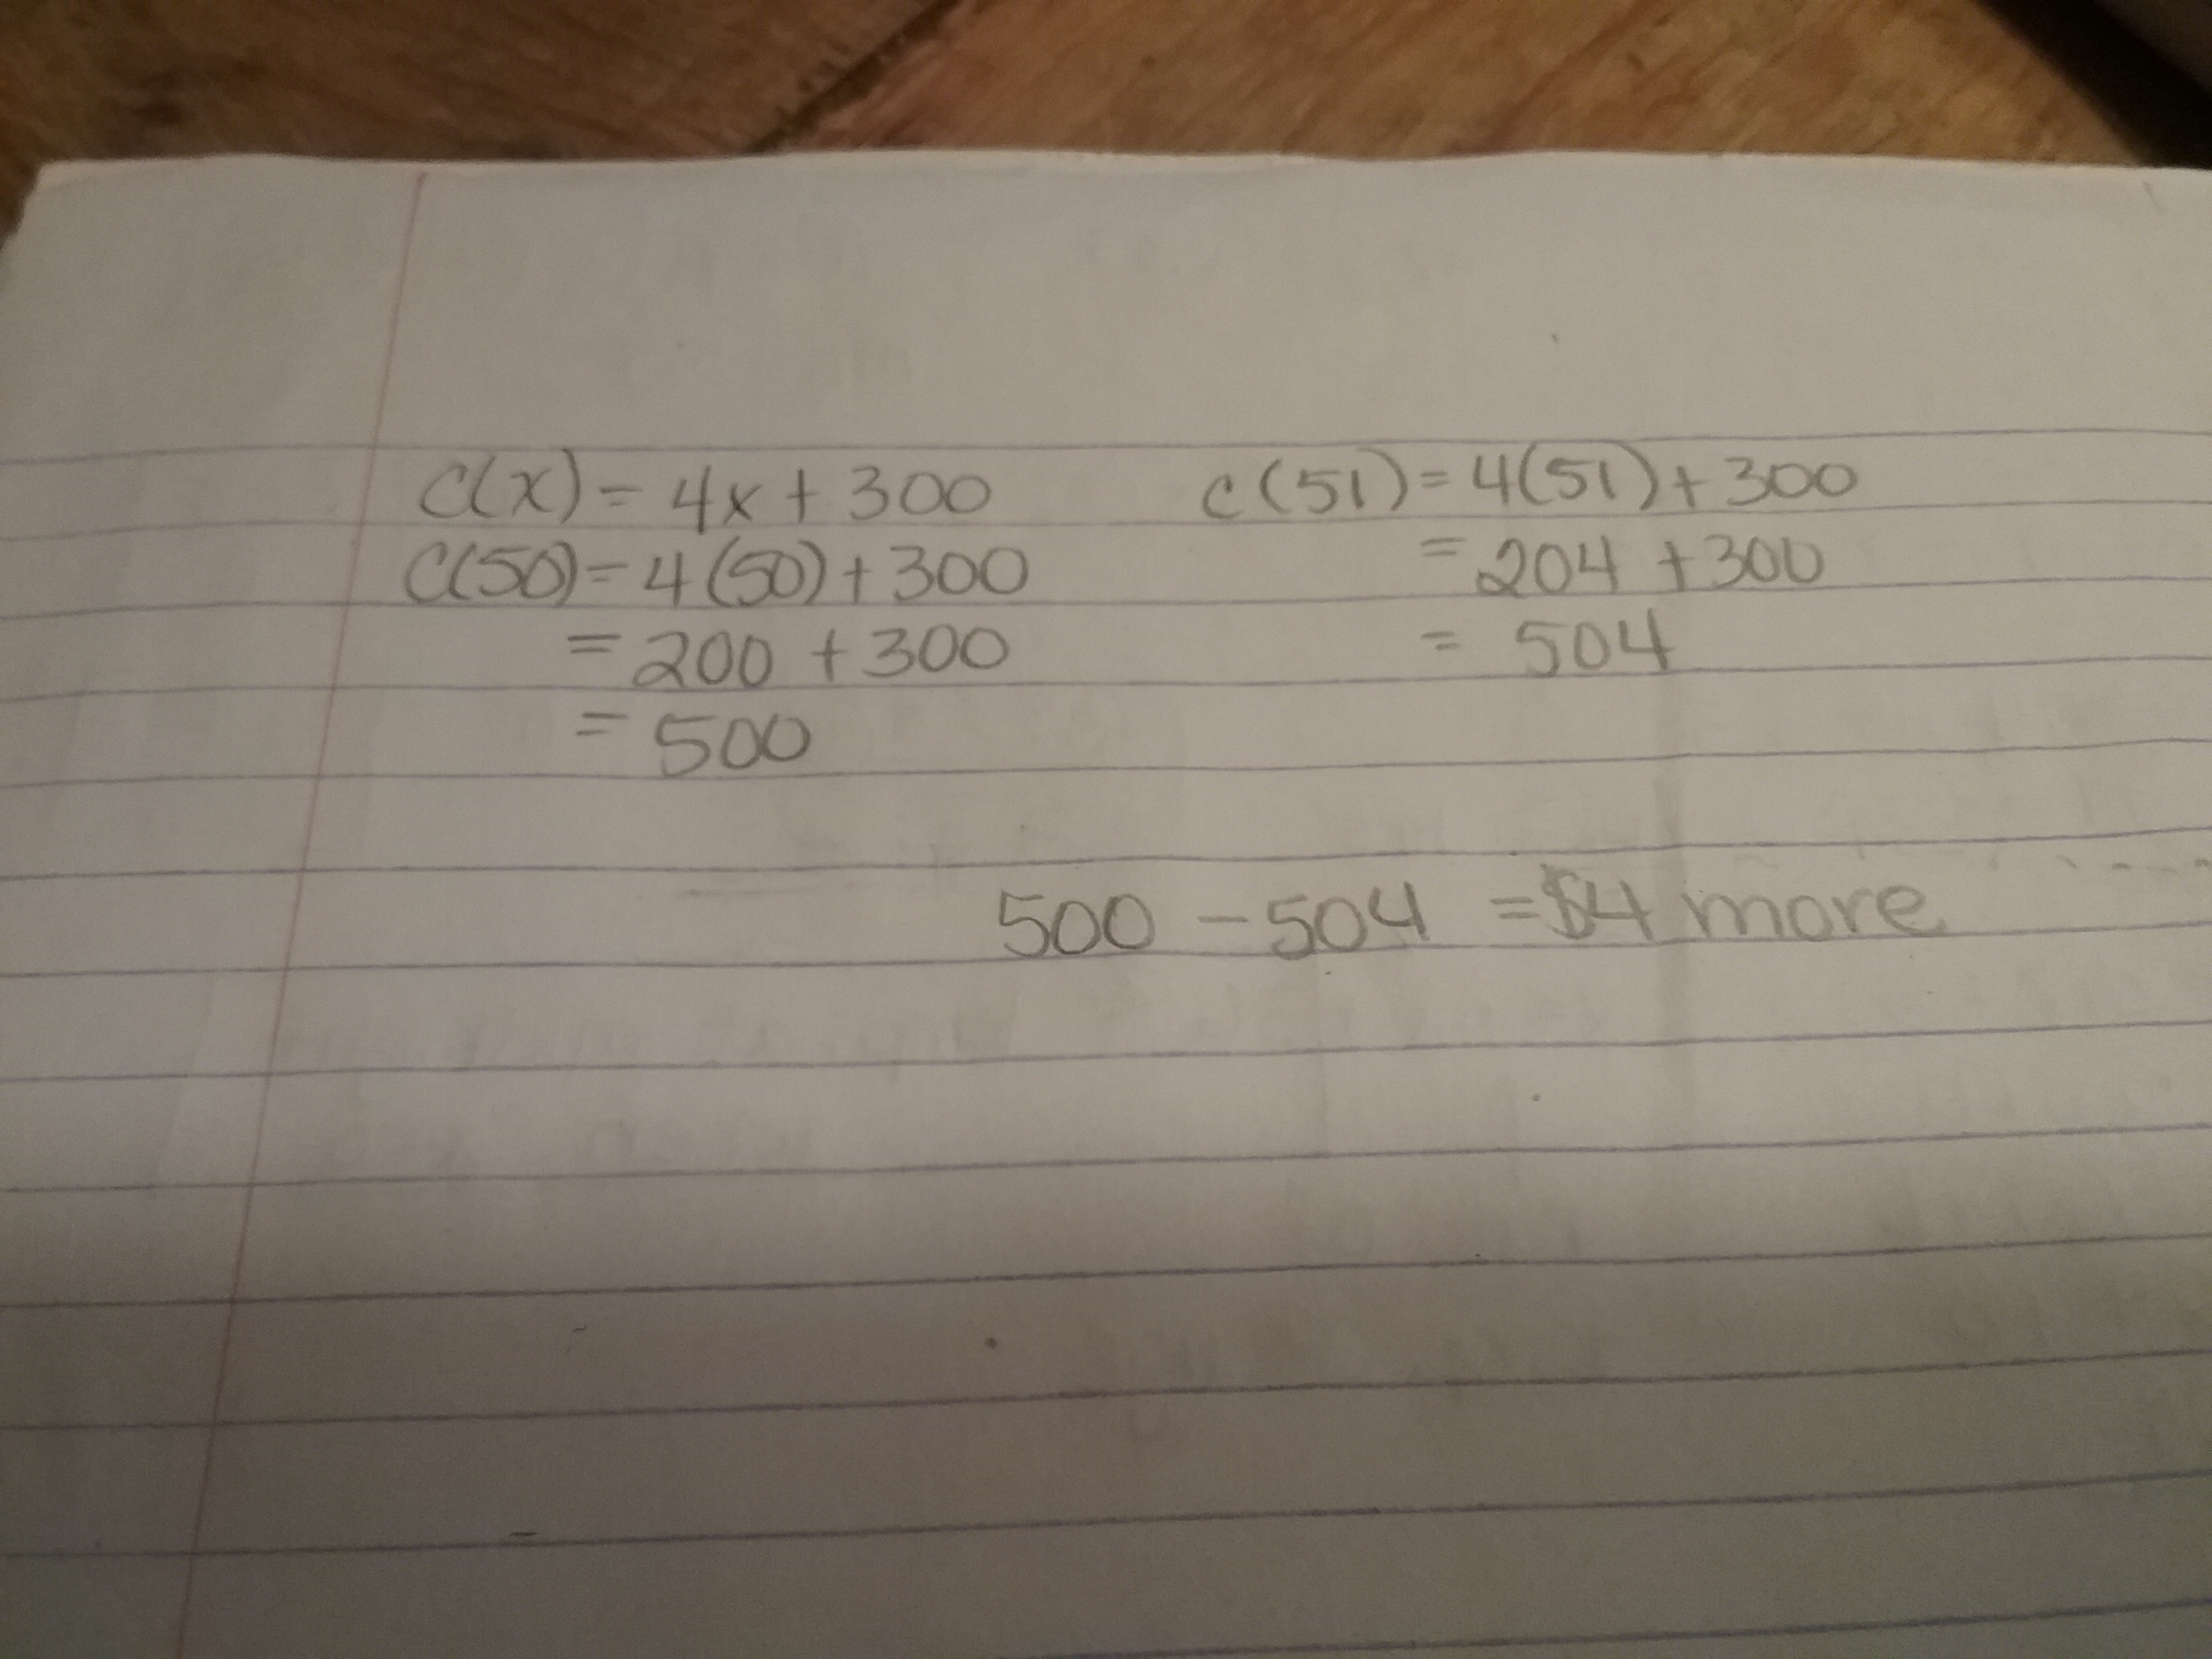 C(x) = 4x + 300
C(50) = 4(50) + 300
= 200 + 300
= 500
C(51) = 4(51) + 300
= 204 + 300
= 504
500 - 504 = $4 more